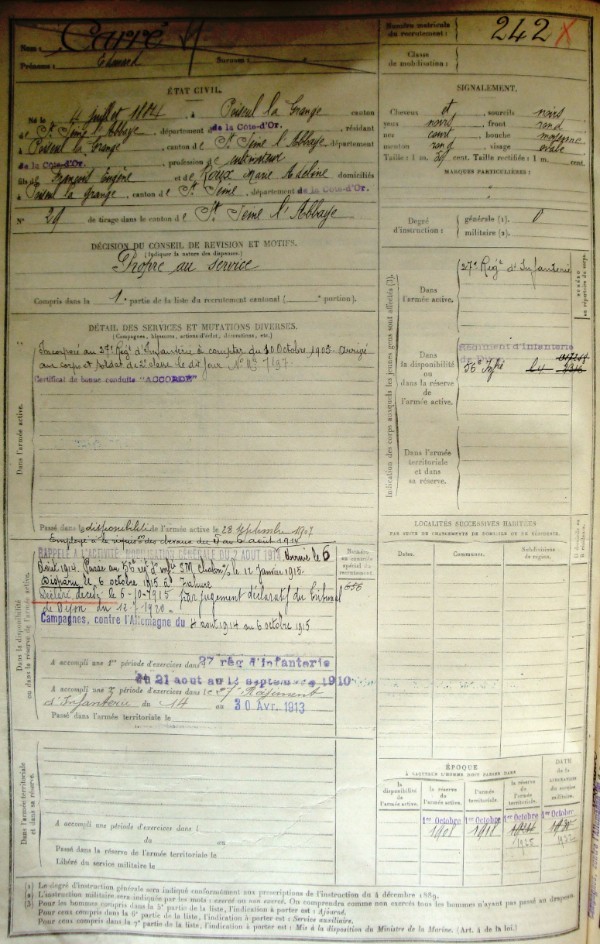 Nom : Carré
Prénoms : Edmond Surnoms :
Numéro matricule du recrutement : 242 X
Classe de mobilisation :
ÉTAT CIVIL.
Né le 4 juillet 1884, à Poiseul la Grange canton
de St Seine l'Abbaye, département de la Côte-d'Or, résidant
à Poiseul la Grange, canton de St Seine l'Abbaye département
de la Côte-d'Or, profession de cultivateur
fils de François Eugène et de Roux Marie Adeline domiciliés
à Poiseul la Grange, canton de St Seine, département de la Côte-d'Or.
N° 29 de tirage dans le canton de St Seine l'Abbaye
SIGNALEMENT.
Cheveux et sourcils noirs
yeux noirs, front rond
nez court, bouche moyenne
menton rond, visage ovale
Taille : 1 m. cent. Taille rectifiée : 1 m. cent.
MARQUES PARTICULIÈRES :
Degré d'instruction :
générale (1).
militaire (2).
DÉCISION DU CONSEIL DE REVISION ET MOTIFS.
(Indiquer la nature des dispenses.)
Propre au service
Compris dans la 1e partie de la liste du recrutement cantonal ( portion).
DÉTAIL DES SERVICES ET MUTATIONS DIVERSES.
(Campagnes, blessures, actions d'éclat, décorations, etc.)
Incorporé au 27e Régt d'Infanterie à compter du 10 Octobre 1905 Arrivé
au corps et soldat de 2e classe le dit jour
Certificat de bonne conduite "ACCORDÉ"
Dans l'armée active.
Indication des corps auxquels les jeunes gens sont affectés (3).
Dans l'armée active.
27e Régt d'Infanterie
Dans la disponibilité ou dans la réserve de l'armée active.
Régiment d'Infanterie
56e Infie
Dans l'armée territoriale et dans sa réserve.
Passé dans la disponibilité de l'armée active le 28 septembre 1907
RAPPELÉ A L'ACTIVITÉ MOBILISATION GÉNÉRALE DU 2 AOUT 1914 Arrivé le 6
Août 1914. Passé au 56e régt d'infie le 12 Janvier 1915.
Disparu le 6 octobre 1915 à Tahure
Déclaré décédé le 6-10-1915 par jugement déclaratif du Tribunal
de Dijon du
Campagnes, contre l'Allemagne du 4 août 1914 au 6 octobre 1915
Numéro au contrôle spécial du recrutement
Dans la disponibilité ou dans la réserve de l'armée active.
A accompli une 1re période d'exercices dans 27 rég d'Infanterie
du 21 août au 12 septembre 1910
A accompli une 2e période d'exercices dans le 27e Régiment
d'Infanterie du 14 au 30 Avr. 1913
Passé dans l'armée territoriale le
LOCALITÉS SUCCESSIVES HABITÉES
PAR SUITE DE CHANGEMENTS DE DOMICILE OU DE RÉSIDENCE.
Dates. Communes. Subdivisions de région.
Dans l'armée territoriale et dans sa réserve.
A accompli une période d'exercices dans l
du au
Passé dans la réserve de l'armée territoriale le
Libéré du service militaire le
ÉPOQUE
À LAQUELLE L'HOMME DOIT PASSER DANS
la disponibilité de l'armée active.
la réserve de l'armée active.
l'armée territoriale.
la réserve de l'armée territoriale.
DATE de la libération du service militaire.
1er Octobre 1er Octobre 1er Octobre 1er Octobre
1908 1918
(1) Le degré d'instruction générale sera indiqué conformément aux prescriptions de l'instruction du 4 décembre 1889.
(2) L'instruction militaire sera indiquée par les mots : exercé ou non exercé. On comprendra comme non exercés tous les hommes n'ayant pas passé au drapeau.
(3) Pour les hommes compris dans la 5e partie de la liste, l'indication à porter est : Ajourné.
Pour ceux compris dans la 6e partie de la liste, l'indication à porter est : Service auxiliaire.
Pour ceux compris dans la 7e partie de la liste, l'indication à porter est : Mis à la disposition du Ministre de la Marine. (Art. 4 de la loi.)